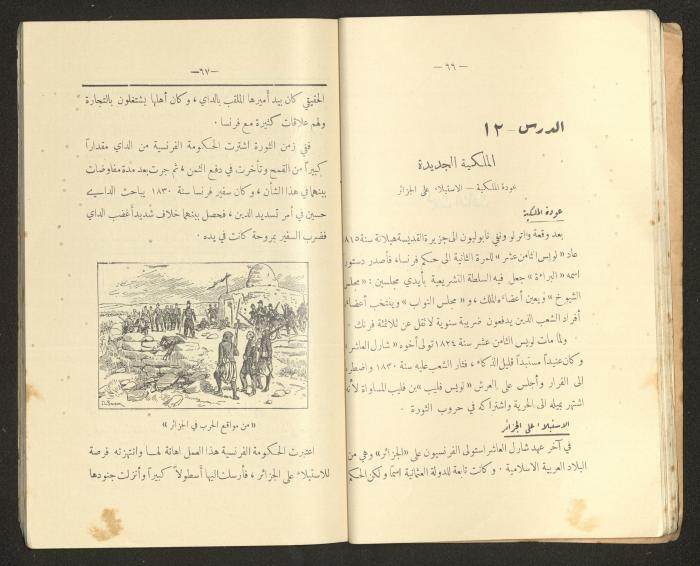 —٦٦—
الدرس — ١٢
الملكية الجديدة
عودة الملكية — الاستيلاء على الجزائر
عودة الملكية
بعد وقعة واترلو ونفي نابوليون الى جزيرة القديسة هيلانة سنة ١٨١٥
عاد «لويس الثامن عشر» للمرة الثانية الى حكم فرنساء فأصدر دستوراً
اسمه «البراءة» جعل فيه السلطة التشريعية بأيدي مجلسين: «مجلس
الشيوخ» ويعين أعضاءه الملك، و«مجلس النواب» وينتخب أعضاءه
أفراد الشعب الذين يدفعون ضريبة سنوية لا تقل عن ثلاثمئة فرنك ٠
ولما مات لويس الثامن عشر سنة ١٨٢٤ تولى أخوه «شارل العاشر»
وكان عنيداً مستبداً قليل الذكاء، فثار الشعب عليه سنة ١٨٣٠ واضطره
الى الفرار وأجلس على العرش «لويس فليب» بن فليب المساواة لأنه
اشتهر بميله الى الحرية واشتراكه في حروب الثورة ٠
الاستيلاء على الجزائر
في آخر عهد شارل العاشر استولى الفرنسيون على «الجزائر» وهي من
البلاد العربية الاسلامية ٠ وكانت تابعة للدولة العثمانية اسماً ولكن الحكم
—٦٧—
الحقيقي كان بيد أميرها الملقب بالداي، وكان أهلها يشتغلون بالتجارة
ولهم علاقات كثيرة مع فرنسا ٠
ففي زمن الثورة اشترت الحكومة الفرنسية من الداي مقداراً
كبيراً من القمح وتأخرت في دفع الثمن، ثم جرت بعد مدة مفاوضات
بينهما في هذا الشأن، وكان سفير فرنسا سنة ١٨٣٠ يباحث الداي
حسين في أمر تسديد الدين، فحصل بينهما خلاف شديد أغضب الداي
فضرب السفير بمروحة كانت في يده ٠
«من مواقع الحرب في الجزائر»
اعتبرت الحكومة الفرنسية هذا العمل اهانة لها وانتهزته فرصة
للاستيلاء على الجزائر، فأرسلت اليها أسطولاً كبيراً وأنزلت جنودها